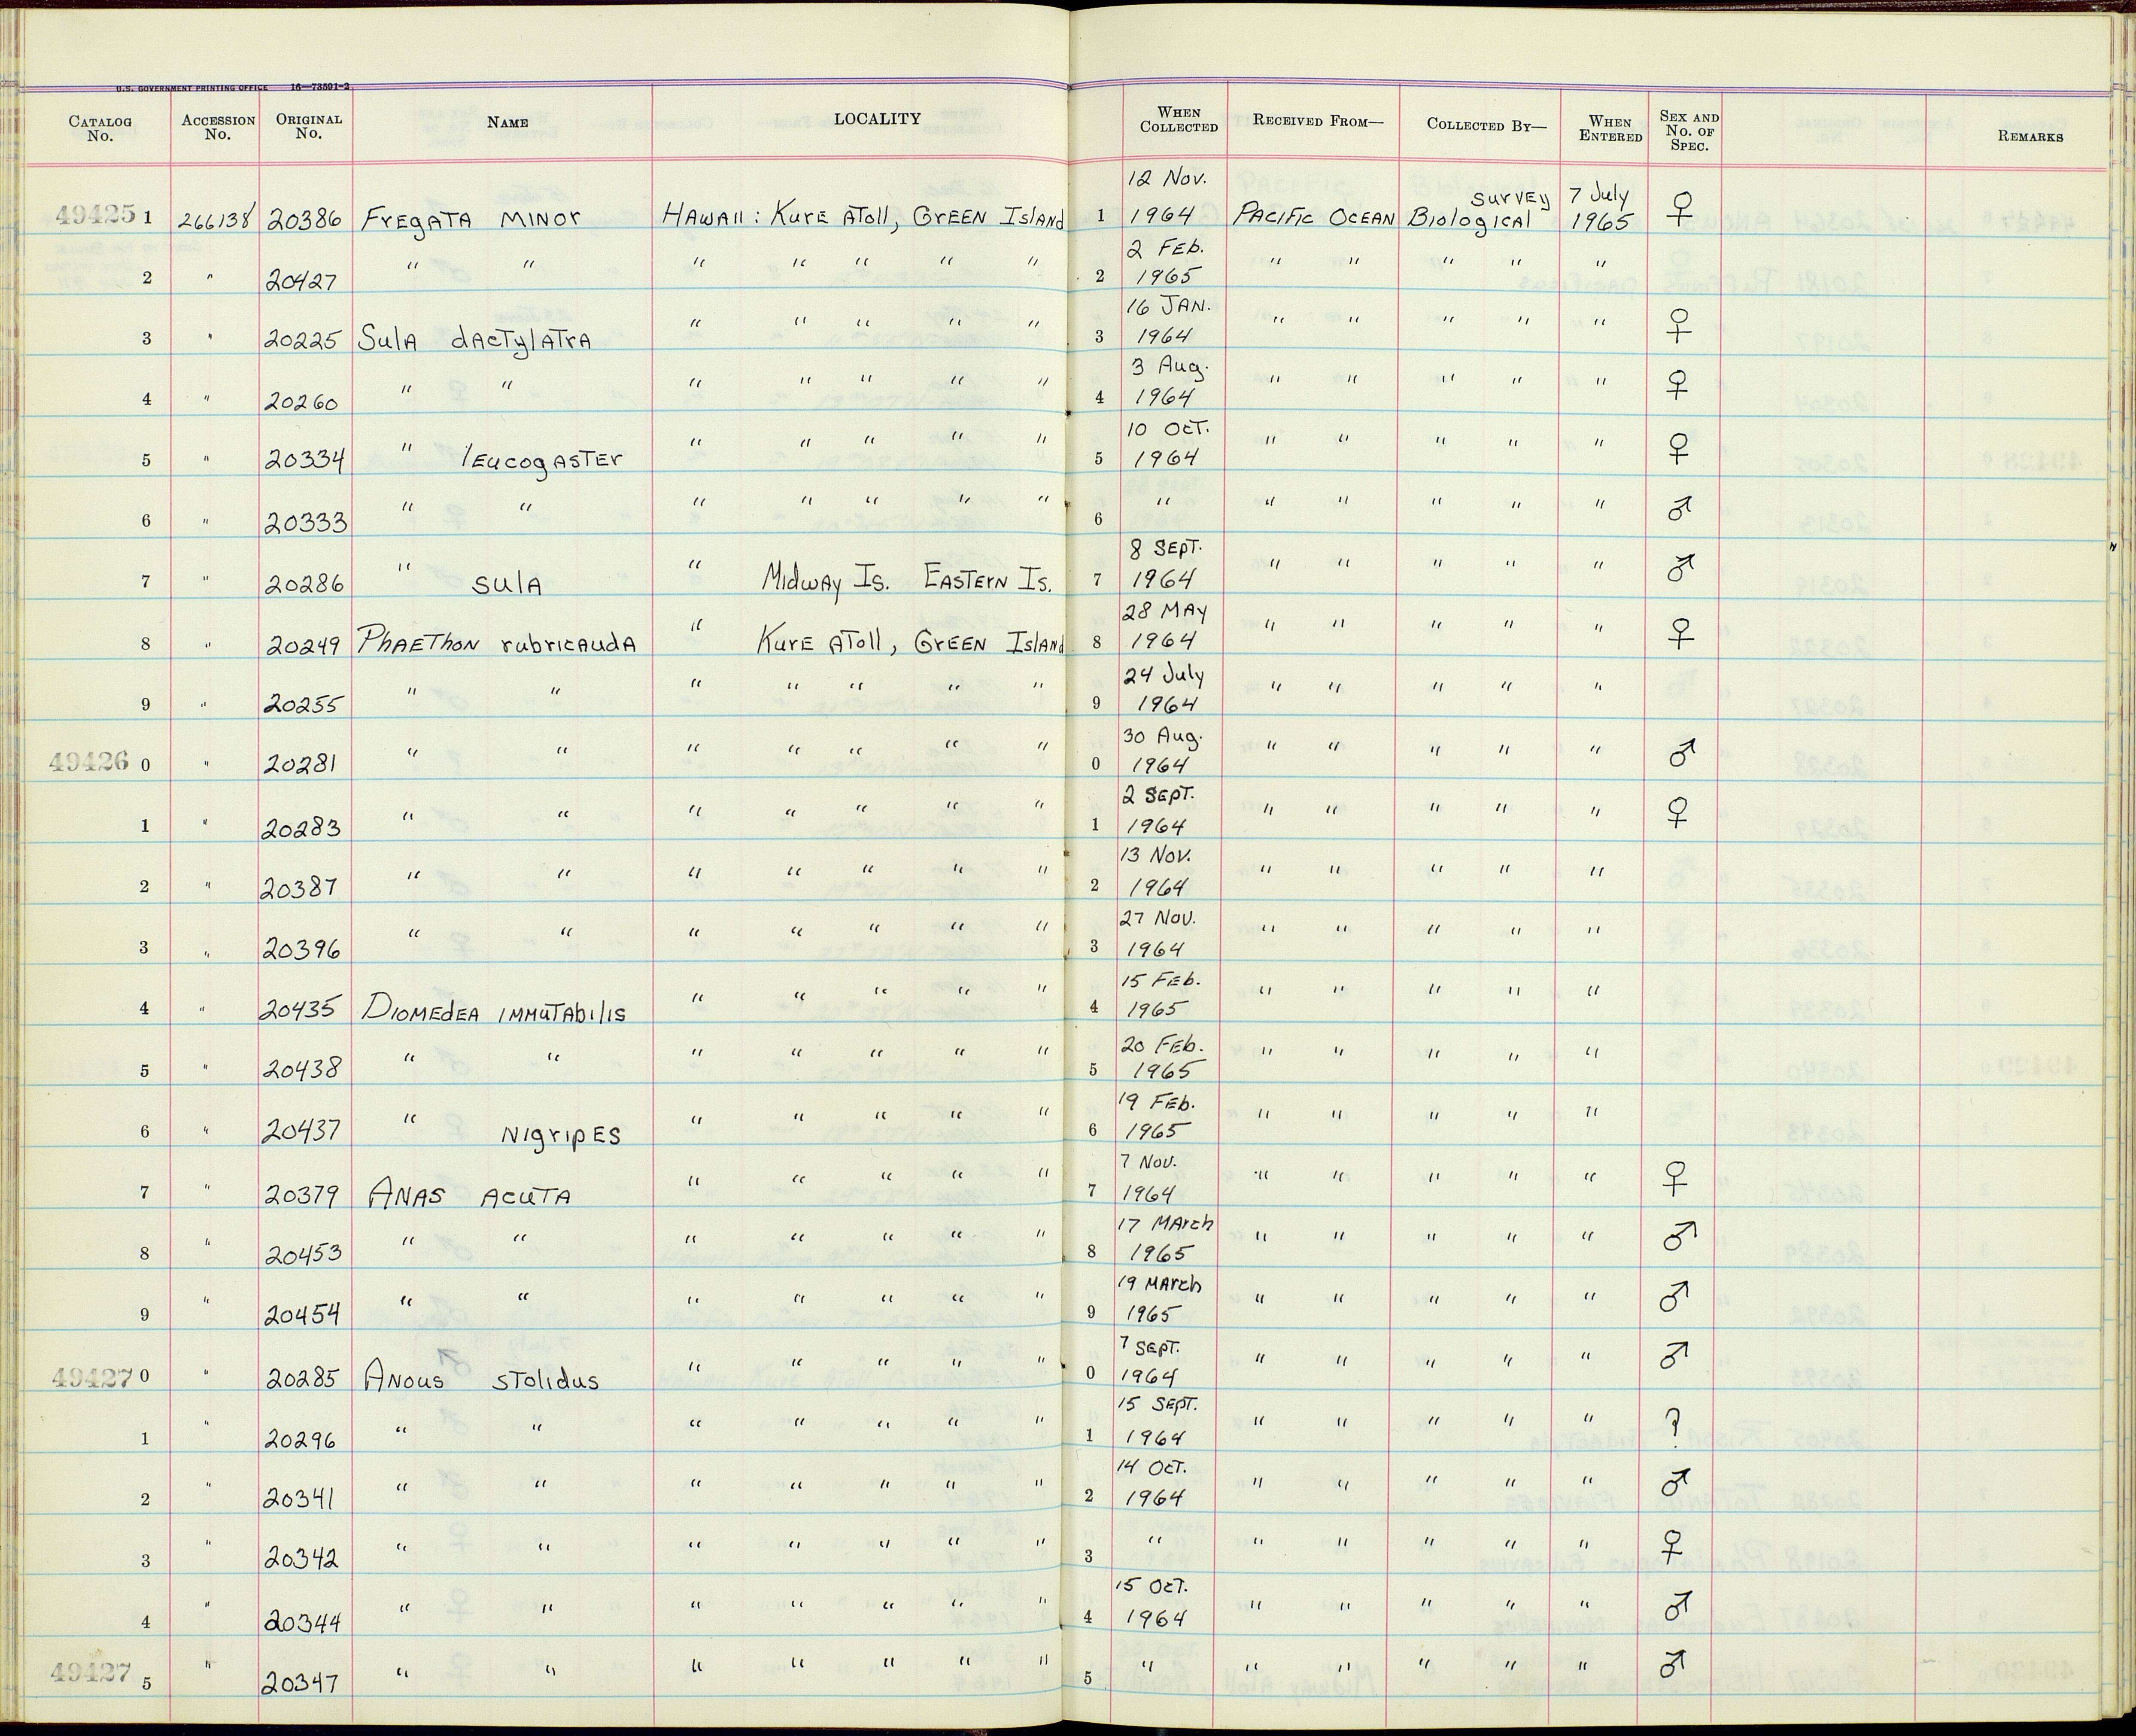 U.S. GOVERNMENT PRINTING OFFICE 16—73591-2
CATALOG No. ACCESSION No. ORIGINAL No. NAME LOCALITY WHEN COLLECTED RECEIVED FROM— COLLECTED BY— WHEN ENTERED SEX AND No. OF SPEC. REMARKS
49425 1 266138 20386 Fregata minor Hawaii: Kure Atoll, Green Island 1 12 Nov. 1964 Pacific Ocean Biological Survey 7 July 1965 ♀
2 " 20427 " " " " " " " 2 2 Feb. 1965 " " " " "
3 " 20225 Sula dactylatra " " " " " 3 16 Jan. 1964 " " " " " ♀
4 " 20260 " " " " " " " 4 3 Aug. 1964 " " " " " ♀
5 " 20334 " leucogaster " " " " " 5 10 Oct. 1964 " " " " " ♀
6 " 20333 " " " " " " " 6 " " " " " " ♂
7 " 20286 " sula " Midway Is. Eastern Is. 7 8 Sept. 1964 " " " " " ♂
8 " 20249 Phaethon rubricauda " Kure Atoll, Green Island 8 28 May 1964 " " " " " ♀
9 " 20255 " " " " " " " 9 24 July 1964 " " " " "
49426 0 " 20281 " " " " " " " 0 30 Aug. 1964 " " " " " ♂
1 " 20283 " " " " " " " 1 2 Sept. 1964 " " " " " ♀
2 " 20387 " " " " " " " 2 13 Nov. 1964 " " " " "
3 " 20396 " " " " " " " 3 27 Nov. 1964 " " " " "
4 " 20435 Diomedea immutabilis " " " " " 4 15 Feb. 1965 " " " " "
5 " 20438 " " " " " " " 5 20 Feb. 1965 " " " " "
6 " 20437 " nigripes " " " " " 6 19 Feb. 1965 " " " " "
7 " 20379 Anas acuta " " " " " 7 7 Nov. 1964 " " " " " ♀
8 " 20453 " " " " " " " 8 17 March 1965 " " " " " ♂
9 " 20454 " " " " " " " 9 19 March 1965 " " " " " ♂
49427 0 " 20285 Anous stolidus " " " " " 0 7 Sept. 1964 " " " " " ♂
1 " 20296 " " " " " " " 1 15 Sept. 1964 " " " " " ?
2 " 20341 " " " " " " " 2 14 Oct. 1964 " " " " " ♂
3 " 20342 " " " " " " " 3 " " " " " " ♀
4 " 20344 " " " " " " " 4 15 Oct. 1964 " " " " " ♂
49427 5 " 20347 " " " " " " " 5 " " " " " " ♂